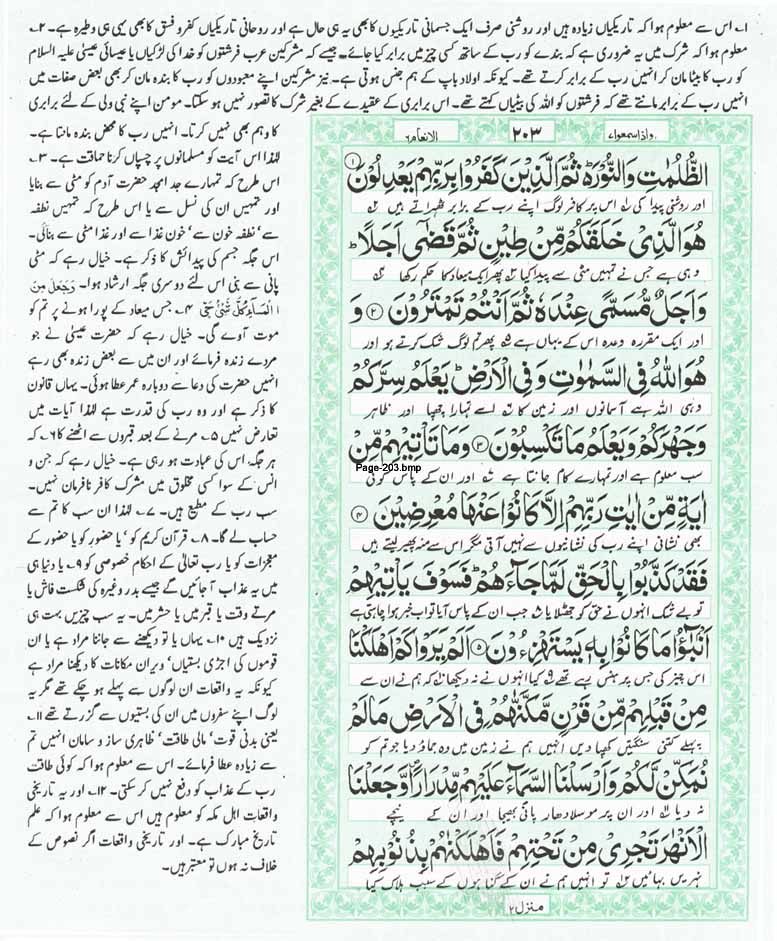 ۱؎ اس سے معلوم ہوا کہ تاریکیاں زیادہ ہیں اور روشنی صرف ایک جسمانی تاریکیوں کا بھی یہ ہی حال ہے اور روحانی تاریکیاں کفر و فسق کا بھی یہی ہی وطیرہ ہے۔ ۲؎
معلوم ہوا کہ شرک میں یہ ضروری ہے کہ بندے کو رب کے ساتھ کسی چیز میں برابر کیا جائے۔ جیسے کہ مشرکین عرب فرشتوں کو خدا کی لڑکیاں یا عیسائی عیسیٰ علیہ السلام
کو رب کا بیٹا مان کر انہیں رب کے برابر کرتے تھے۔ کیونکہ اولاد باپ کے ہم جنس ہوتی ہے۔ نیز مشرکین اپنے معبودوں کو رب کا بندہ مان کر بھی بعض صفات میں
انہیں رب کے برابر مانتے تھے کہ فرشتوں کو اللہ کی بیٹیاں کہتے تھے۔ اس برابری کے عقیدے کے بغیر شرک کا تصور نہیں ہو سکتا۔ مومن اپنے نبی ولی کے لئے برابری
واذاسمعوا۷
۲۰۳
الانعام۶
الظُّلُمٰتِ وَالنُّوْرَ۬ؕ ثُمَّ الَّذِیْنَ كَفَرُوْا بِرَبِّهِمْ یَعْدِلُوْنَ ۱
اور روشنی پیدا کی ۱؎ اس پر کافر لوگ اپنے رب کے برابر ٹھہراتے ہیں ۲؎
هُوَ الَّذِیْ خَلَقَكُمْ مِّنْ طِیْنٍ ثُمَّ قَضٰۤی اَجَلًا ؕ
وہی ہے جس نے تمہیں مٹی سے پیدا کیا ۳؎ پھر ایک میعاد کا حکم رکھا ۴؎
وَ اَجَلٌ مُّسَمًّی عِنْدَهٗ ثُمَّ اَنْتُمْ تَمْتَرُوْنَ ۲ وَ
اور ایک مقررہ وعدہ اس کے یہاں ہے ۵؎ پھر تم لوگ شک کرتے ہو اور
هُوَ اللّٰهُ فِی السَّمٰوٰتِ وَ فِی الْاَرْضِ ؕ یَعْلَمُ سِرَّكُمْ
وہی اللہ ہے آسمانوں اور زمین کا ۶؎ اسے تمہارا چھپا اور ظاہر
وَجَهْرَكُمْ وَیَعْلَمُ مَا تَكْسِبُوْنَ ۳ وَمَا تَاْتِیْهِمْ مِّنْ
سب معلوم ہے اور تمہارے کام جانتا ہے ۷؎ اور ان کے پاس کوئی
Page-203.bmp
اٰیَةٍ مِّنْ اٰیٰتِ رَبِّهِمْ اِلَّا كَانُوْا عَنْهَا مُعْرِضِیْنَ ۴
بھی نشانی اپنے رب کی نشانیوں سے نہیں آتی مگر اس سے منہ پھیر لیتے ہیں
فَقَدْ كَذَّبُوْا بِالْحَقِّ لَمَّا جَآءَهُمْ ؕ فَسَوْفَ یَاْتِیْهِمْ
تو بے شک انہوں نے حق کو جھٹلایا ۸؎ جب ان کے پاس آیا تو اب خبر ہوا چاہتی ہے
اَنْۢبٰٓؤُا مَا كَانُوْا بِهٖ یَسْتَهْزِءُوْنَ ۵ اَلَمْ یَرَوْا كَمْ اَهْلَكْنَا
اس چیز کی جس پر ہنس رہے تھے ۹؎ کیا انہوں نے نہ دیکھا ۱۰؎ کہ ہم نے ان سے
مِنْ قَبْلِهِمْ مِّنْ قَرْنٍ مَّكَّنّٰهُمْ فِی الْاَرْضِ مَا لَمْ
پہلے کتنی سنگتیں کھپا دیں انہیں ہم نے زمین میں وہ جماؤ دیا جو تم کو
نُمَكِّنْ لَّكُمْ وَ اَرْسَلْنَا السَّمَآءَ عَلَیْهِمْ مِّدْرَارًا ۪ وَّ جَعَلْنَا
نہ دیا ۱۱؎ اور ان پر موسلا دھار پانی بھیجا اور ان کے نیچے
الْاَنْهٰرَ تَجْرِیْ مِنْ تَحْتِهِمْ فَاَهْلَكْنٰهُمْ بِذُنُوْبِهِمْ
نہریں بہائیں تو انہیں ہم نے ان کے گناہوں کے سبب ہلاک کیا
منزل۲
کا وہم بھی نہیں کرتا۔ انہیں رب کا محض بندہ مانتا ہے۔
لہٰذا اس آیت کو مسلمانوں پر چسپاں کرنا حماقت ہے۔ ۳؎
اس طرح کہ تمہارے جد امجد حضرت آدم کو مٹی سے بنایا
اور تمہیں ان کی نسل سے یا اس طرح کہ تمہیں نطفہ
سے' نطفہ خون سے' خون غذا سے اور غذا مٹی سے بنائی۔
اس جگہ جسم کی پیدائش کا ذکر ہے۔ خیال رہے کہ مٹی
پانی سے بنی اس لئے دوسری جگہ ارشاد ہوا۔ وَجَعَلْنَا مِنَ
الْمَآءِ كُلَّ شَیْءٍ حَیٍّ ۴؎ جس میعاد کے پورا ہونے پر تم کو
موت آوے گی۔ خیال رہے کہ حضرت عیسیٰ نے جو
مردے زندہ فرمائے اور ان میں سے بعض زندہ بھی رہے
انہیں حضرت کی دعا سے دوبارہ عمر عطا ہوئی۔ یہاں قانون
کا ذکر ہے اور وہ رب کی قدرت ہے لہٰذا آیات میں
تعارض نہیں ۵؎ مرنے کے بعد قبروں سے اٹھنے کا ۶؎ کہ
ہر جگہ اس کی عبادت ہو رہی ہے۔ خیال رہے کہ جن و
انس کے سوا کسی مخلوق میں مشرک کافر نافرمان نہیں۔
سب رب کے مطیع ہیں۔ ۷؎ لہٰذا ان سب کا تم سے
حساب لے گا۔ ۸؎ قرآن کریم کو' یا حضور کو یا حضور کے
معجزات کو یا رب تعالیٰ کے احکام خصوصی کو ۹؎ یا دنیا ہی
میں یہ عذاب آ جائیں گے جیسے بدر وغیرہ کی شکست فاش یا
مرتے وقت یا قبر میں یا حشر میں۔ یہ سب چیزیں بہت ہی
نزدیک ہیں ۱۰؎ یہاں یا تو دیکھنے سے جاننا مراد ہے یا ان
قوموں کی اجڑی بستیاں' ویران مکانات کا دیکھنا مراد ہے
کیونکہ یہ واقعات ان لوگوں سے پہلے ہو چکے تھے مگر یہ
لوگ اپنے سفروں میں ان کی بستیوں سے گزرتے تھے ۱۱؎
یعنی بدنی قوت' مالی طاقت' ظاہری ساز و سامان انہیں تم
سے زیادہ عطا فرمائے۔ اس سے معلوم ہوا کہ کوئی طاقت
رب کے عذاب کو دفع نہیں کر سکتی۔ ۱۲؎ اور یہ تاریخی
واقعات اہل مکہ کو معلوم ہیں اس سے معلوم ہوا کہ علم
تاریخ مبارک ہے۔ اور تاریخی واقعات اگر نصوص کے
خلاف نہ ہوں تو معتبر ہیں۔